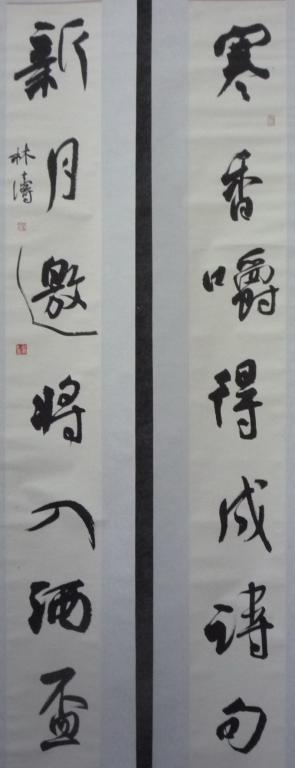 寒香嚼得成詩句
新月邀將入酒盃
林濤